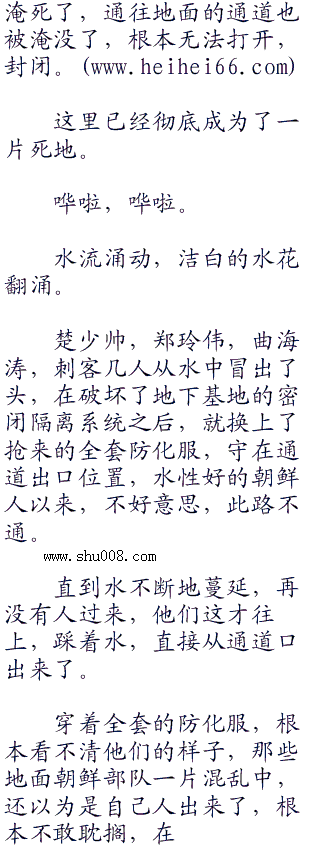 淹死了，通往地面的通道也
被淹没了，根本无法打开，
封闭。(www.heihei66.com)
这里已经彻底成为了一
片死地。
哗啦，哗啦。
水流涌动，洁白的水花
翻涌。
楚少帅，郑玲伟，曲海
涛，刺客几人从水中冒出了
头，在破坏了地下基地的密
闭隔离系统之后，就换上了
抢来的全套防化服，守在通
道出口位置，水性好的朝鲜
人以来，不好意思，此路不
通。
www.shu008.com
直到水不断地蔓延，再
没有人过来，他们这才往
上，踩着水，直接从通道口
出来了。
穿着全套的防化服，根
本看不清他们的样子，那些
地面朝鲜部队一片混乱中，
还以为是自己人出来了，根
本不敢耽搁，在